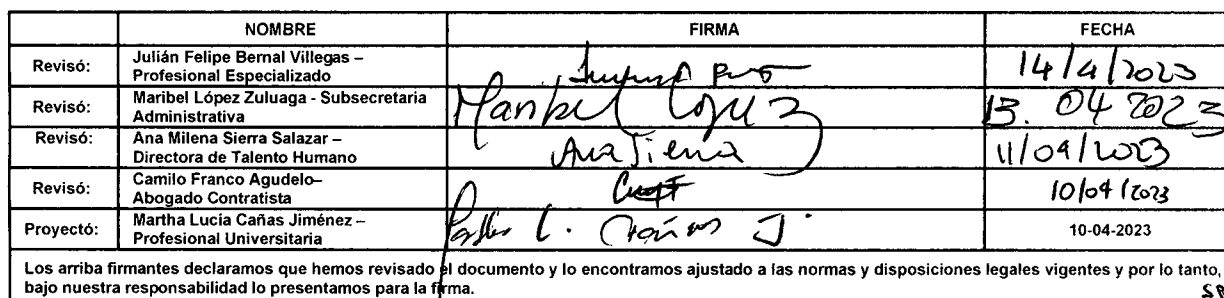 NOMBRE FIRMA FECHA
Revisó: Julián Felipe Bernal Villegas –
Profesional Especializado 14/4/2023
Revisó: Maribel López Zuluaga - Subsecretaria
Administrativa Maribel López Z 13. 04 2023
Revisó: Ana Milena Sierra Salazar –
Directora de Talento Humano Ana Sierra 11/04/2023
Revisó: Camilo Franco Agudelo–
Abogado Contratista 10/04/2023
Proyectó: Martha Lucía Cañas Jiménez –
Profesional Universitaria L. Cañas J. 10-04-2023
Los arriba firmantes declaramos que hemos revisado el documento y lo encontramos ajustado a las normas y disposiciones legales vigentes y por lo tanto,
bajo nuestra responsabilidad lo presentamos para la firma.